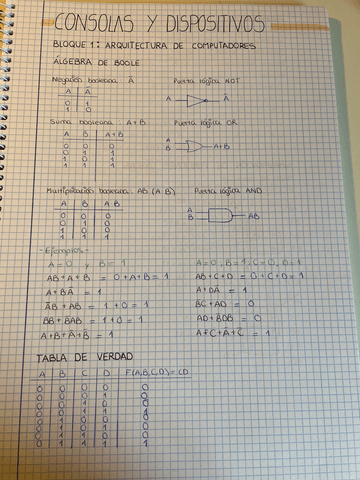 CONSOLAS Y DISPOSITIVOS
BLOQUE 1: ARQUITECTURA DE COMPUTADORES
ÁLGEBRA DE BOOLE
Negación booleana: Ā Puerta lógica NOT
A Ā
0 1
1 0
A Ā
Suma booleana: A+B Puerta lógica OR
A B A+B
0 0 0
0 1 1
1 0 1
1 1 1
A
B A+B
Multiplicación booleana: AB (A·B) Puerta lógica AND
A B A·B
0 0 0
0 1 0
1 0 0
1 1 1
A
B AB
- Ejemplos -
A = 0 y B = 1 A=0, B=1, C=0, D=1
AB+A+B = 0+A+B = 1 AB+C+D = 0+C+D = 1
A+BĀ = 1 A+DĀ = 1
ĀB+AB = 1+0 = 1 BC+AD = 0
BB+BAB = 1+0 = 1
A+B+Ā+B̄ = 1 A+C+Ā+C̄ = 1
TABLA DE VERDAD
A B C D F(A,B,C,D)=CD
0 0 0 0 0
0 0 0 1 0
0 0 1 0 0
0 0 1 1 1
0 1 0 0 0
0 1 0 1 0
0 1 1 0 0
0 1 1 1 1